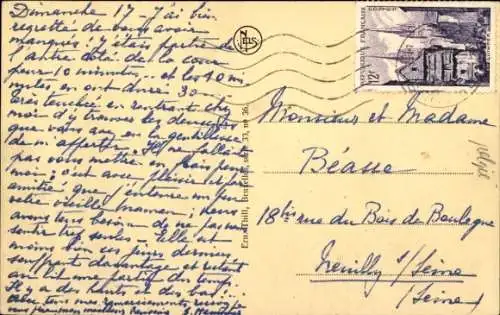 Dimanche 17 - J'ai bien
regretté de vous avoir
manqués. J'étais partie de
l'autre côté de la cour
pour 10 minutes.. et les 10 mi
nutes, en ont duré 30 ...
très touchée en rentrant chez
moi d'y trouver les
que vous avez eu la gentillesse
de m'apporter. Il ne fallait
pas vous mettre en frais pour
moi; c'est avec plaisir et par
amitié que j'entoure un peu
votre vieille maman; nous
avons tous besoin de ne pas nous
sentir trop seules. Elle est
moins bien ces jours derniers
souffrante davantage et restant
au lit une partie du temps.
Il y a des hauts et des bas..
Avec tous mes remerciements recevez
mes meilleurs
NELS
Ern. Thill, Bruxelles, série 33, no 36
REPUBLIQUE FRANÇAISE
POSTES
12F
Monsieur et Madame
Béasse
18bis rue du Bois de Boulogne
Neuilly s/ Seine
(Seine)